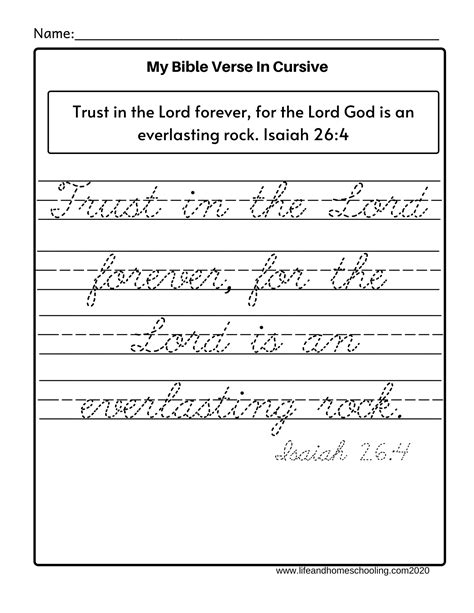 Name:
My Bible Verse In Cursive
Trust in the Lord forever, for the Lord God is an
everlasting rock. Isaiah 26:4
Trust in the Lord
forever, for the
Lord is an
everlasting rock.
Isaiah 26:4
www.lifeandhomeschooling.com2020